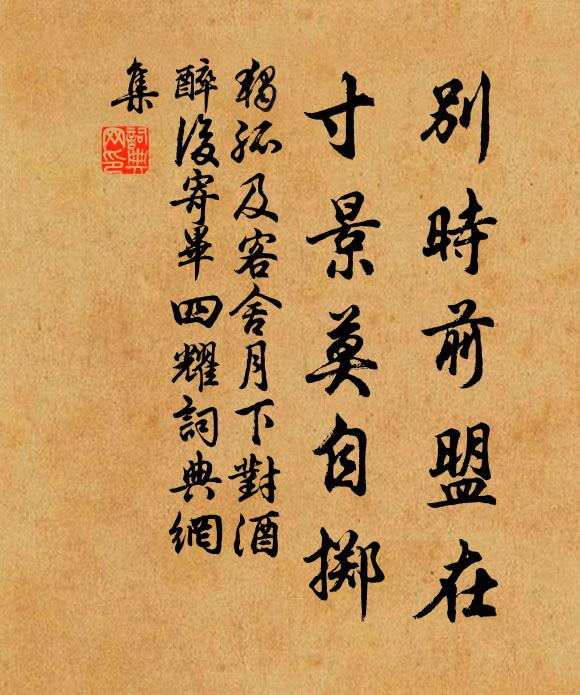 別時前盟在
寸景莫自擲
獨孤及客舍月下對酒
醉後寄畢四耀詞典網
集
詞典
网印